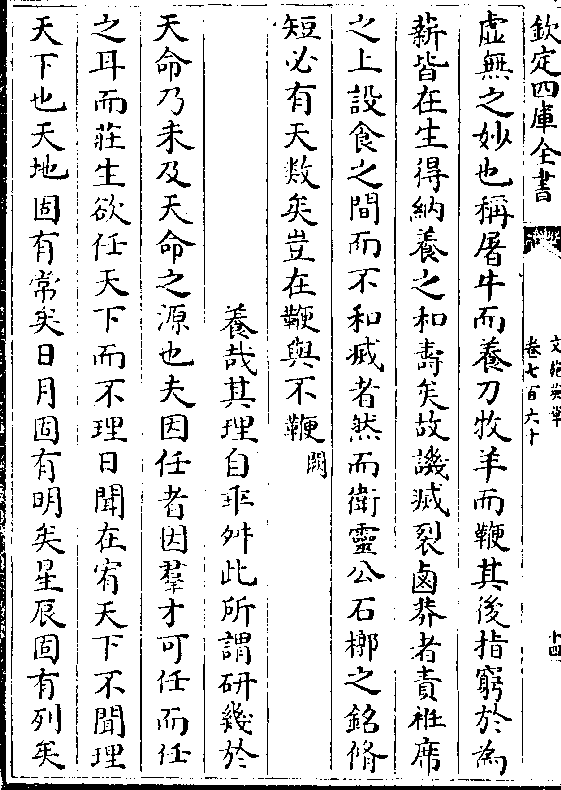 欽定四庫全書
文苑英華
卷七百六十
十四
虛無之妙也稱屠牛而養刀牧羊而鞭其後指窮於為
薪皆在生得納養之和壽矣故譏烕裂鹵莽者責袵席
之上設食之間而不和烕者然而衛靈公石槨之銘脩
短必有天數矣豈在鞭與不鞭闕
養哉其理自乖舛此所謂研幾於
天命乃未及天命之源也夫因任者因羣才可任而任
之耳而莊生欲任天下而不理日聞在宥天下不聞理
天下也天地固有常矣日月固有明矣星辰固有列矣